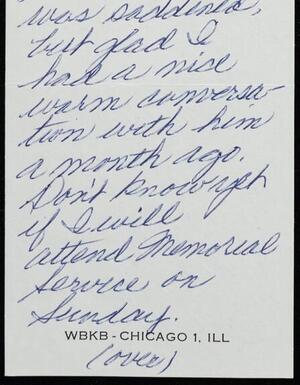 was saddened,
but glad I
had a nice
warm conversa-
tion with him
a month ago.
Don't know yet
if I will
attend Memorial
Service on
Sunday.
WBKB - CHICAGO 1, ILL
(over)